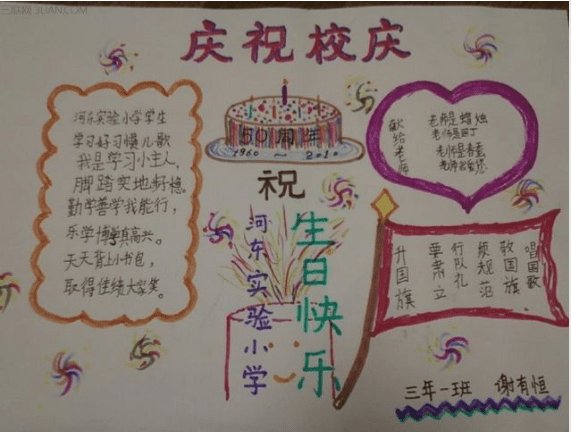 三联网 3LIAN.COM
庆祝校庆
河东实验小学学生
学习好习惯儿歌
我是学习小主人,
脚踏实地好稳。
勤学善学我能行,
乐学博学真高兴。
天天背上小书包,
取得佳绩大家笑。
50周年
1960 ~ 2010
祝
河东实验小学
生日快乐
献给老师
老师是蜡烛
老师是园丁
老师是春蚕
唱国歌
敬国旗
须规范
行队礼
要肃立
升国旗
三年一班 谢有恒